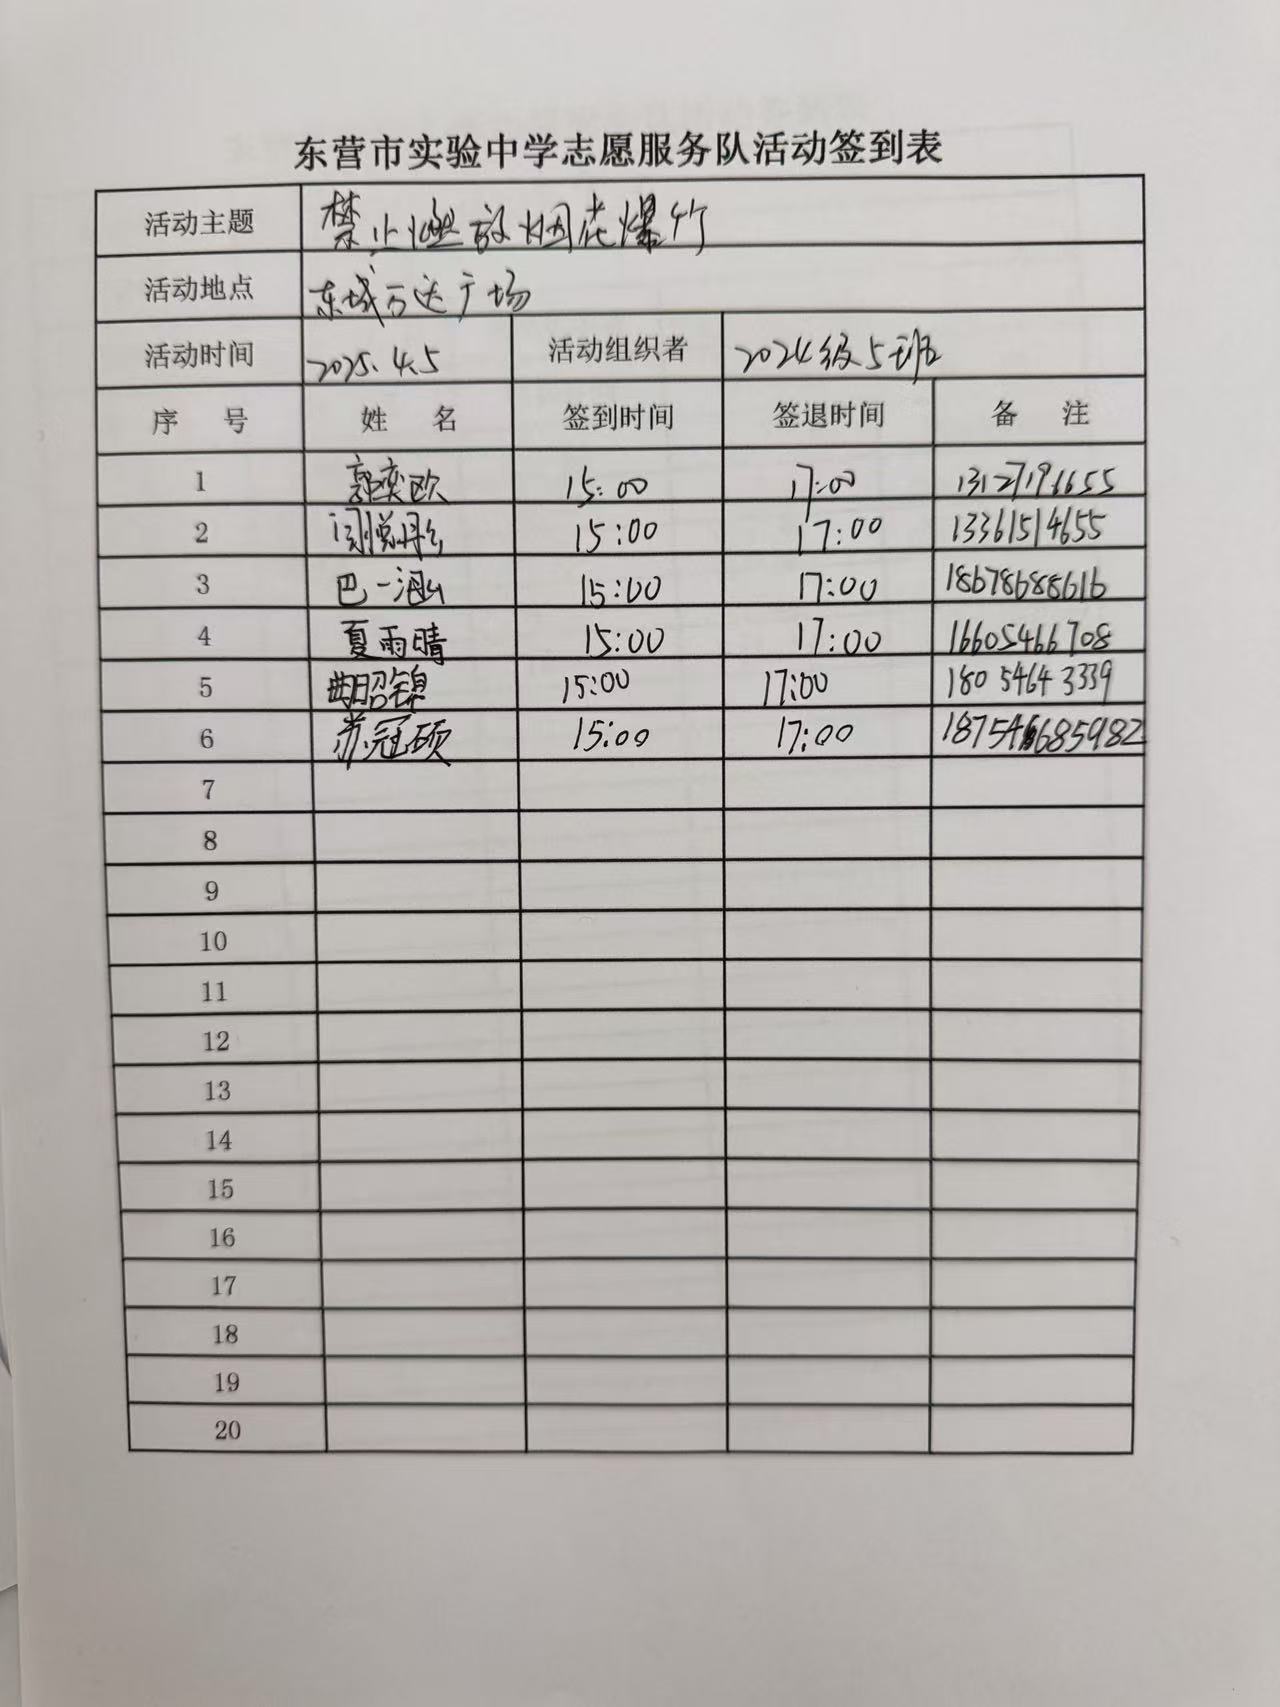 东营市实验中学志愿服务队活动签到表
活动主题 禁止燃放烟花爆竹
活动地点 东城万达广场
活动时间 2025.4.5 活动组织者 2024级5班
序 号 姓 名 签到时间 签退时间 备 注
1 郭奕欧 15:00 17:00 13127196655
2 15:00 17:00 13361514655
3 巴一涵 15:00 17:00 18678688616
4 夏雨晴 15:00 17:00 16605466708
5 曲昭锦 15:00 17:00 180 5464 3339
6 苏冠硕 15:00 17:00
7
8
9
10
11
12
13
14
15
16
17
18
19
20